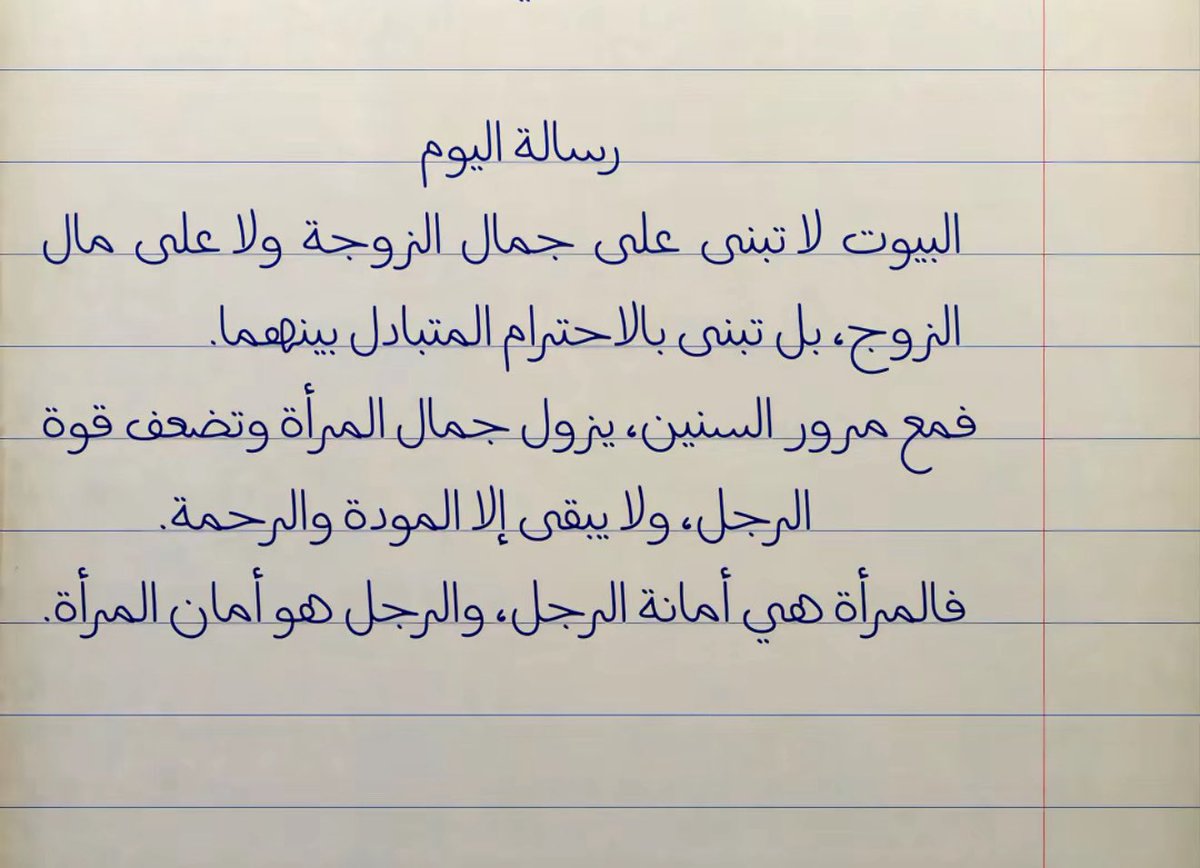 رسالة اليوم
البيوت لا تبنى على جمال الزوجة ولا على مال
الزوج، بل تبنى بالاحترام المتبادل بينهما.
فمع مرور السنين، يزول جمال المرأة وتضعف قوة
الرجل، ولا يبقى إلا المودة والرحمة.
فالمرأة هي أمانة الرجل، والرجل هو أمان المرأة.